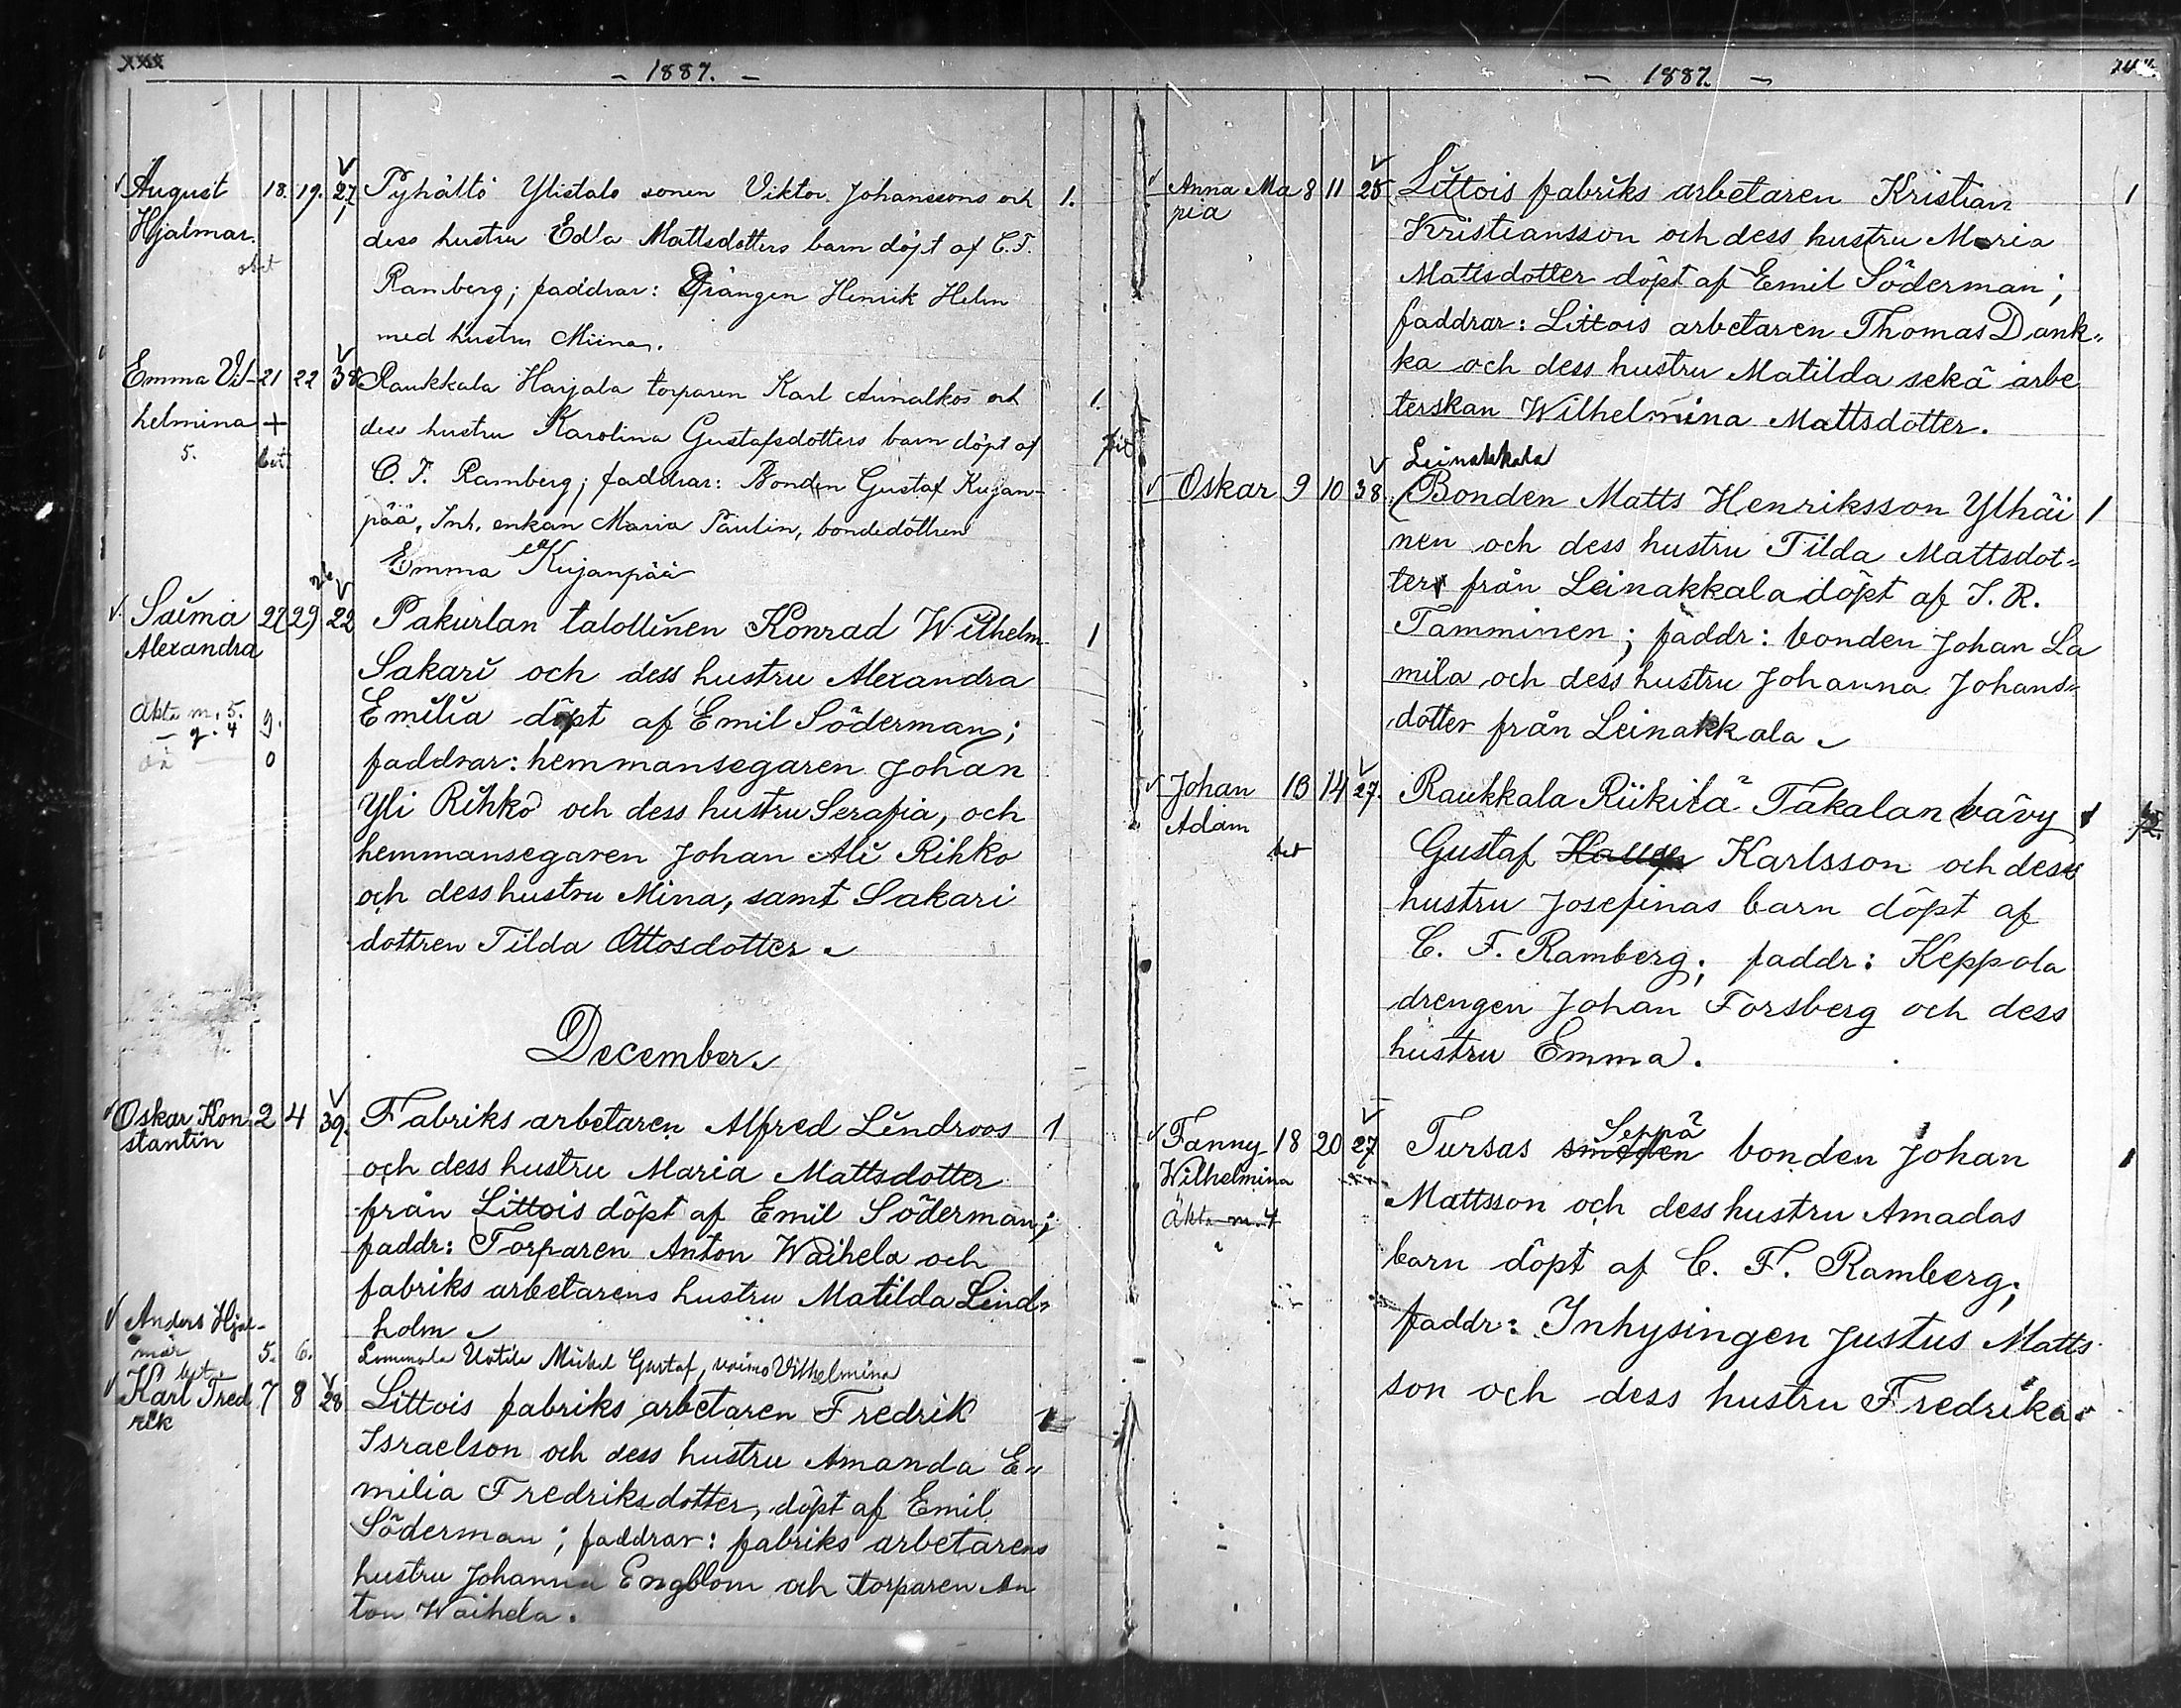 - 1887. -
August 18. 19. 27 Pyhältö Ylistalo sonen Viktor Johanssons och 1.
Hjalmar. dess hustru Edla Mattsdotters barn döpt af C. F.
Ramberg; faddrar: Drängen Henrik Helin
med hustru Miina.
Emma Vil- 21 22 38 Raukkala Harjala torparen Karl och 1.
helmina + dess hustru Karolina Gustafsdotters barn döpt af
5. C. F. Ramberg; faddrar: Bonden Gustaf Kujan-
pää, Inh. enkan Maria Paulin, bondedottren
Emma Kujanpää
Saima 27 29 22 Pakurlan talollinen Konrad Wilhelm 1
Alexandra Sakari och dess hustru Alexandra
Äkta m. 5. g. Emilia döpt af Emil Söderman;
- q. 4
oä - 0 faddrar: hemmansegaren Johan
Yli Rihko och dess hustru Serafia, och
hemmansegaren Johan Ali Rihko
och dess hustru Mina, samt Sakari
dottren Tilda Ottosdotter.
December.
Oskar Kon 2 4 39. Fabriks arbetaren Alfred Lindroos 1
stantin och dess hustru Maria Mattsdotter
från Littois döpt af Emil Söderman;
faddr: Torparen Anton Waihela och
fabriks arbetarens hustru Matilda Lind=
holm.
Anders Hjal-
mar 5. 6. Lemmola Uotila Mikel Gustaf, vaimo Vilhelmina
Karl Fred 7 8 28 Littois fabriks arbetaren Fredrik 1
rik Israelson och dess hustru Amanda E=
milia Fredriksdotter, döpt af Emil
Söderman; faddrar: fabriks arbetarens
hustru Johanna Engblom och torparen An
ton Waihela.
- 1887. -
Anna Ma 8 11 25 Littois fabriks arbetaren Kristian 1
ria Kristiansson och dess hustru Maria
Mattsdotter döpt af Emil Söderman;
faddrar: Littois arbetaren Thomas Dank=
ka och dess hustru Matilda sekä arbe
terskan Wilhelmina Mattsdotter.
Leinakkala
Oskar 9 10 38. Bonden Matts Henriksson Ylhäi 1
nen och dess hustru Tilda Mattsdot=
ter från Leinakkala döpt af I. R.
Tamminen; faddr: bonden Johan La
mila och dess hustru Johanna Johans=
dotter från Leinakkala.
Johan 13 14 27. Raukkala Riikilä Takalan vävy 1
Adam Gustaf Karlsson och dess
hustru Josefinas barn döpt af
C. F. Ramberg; faddr: Keppola
drengen Johan Forsberg och dess
hustru Emma.
Seppä
Fanny 18 20 27 Tursas smeden bonden Johan 1
Wilhelmina Mattsson och dess hustru Amadas
Äkta m. 4 barn döpt af C. F. Ramberg;
faddr: Inhysingen Justus Matts
son och dess hustru Fredrika.